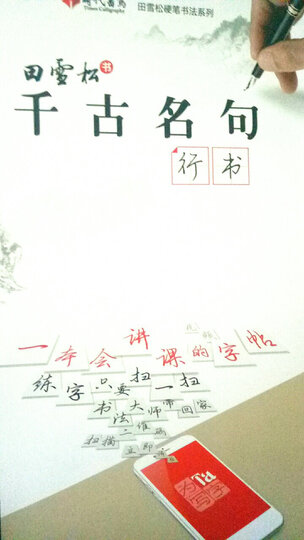 时代书局
Times Calligraphy
田雪松硬笔书法系列
田雪松 书
千古名句
行书
一本会讲课的字帖
练字只要扫一扫
书法大师带回家
扫描二维码
立即
Ta
为写字